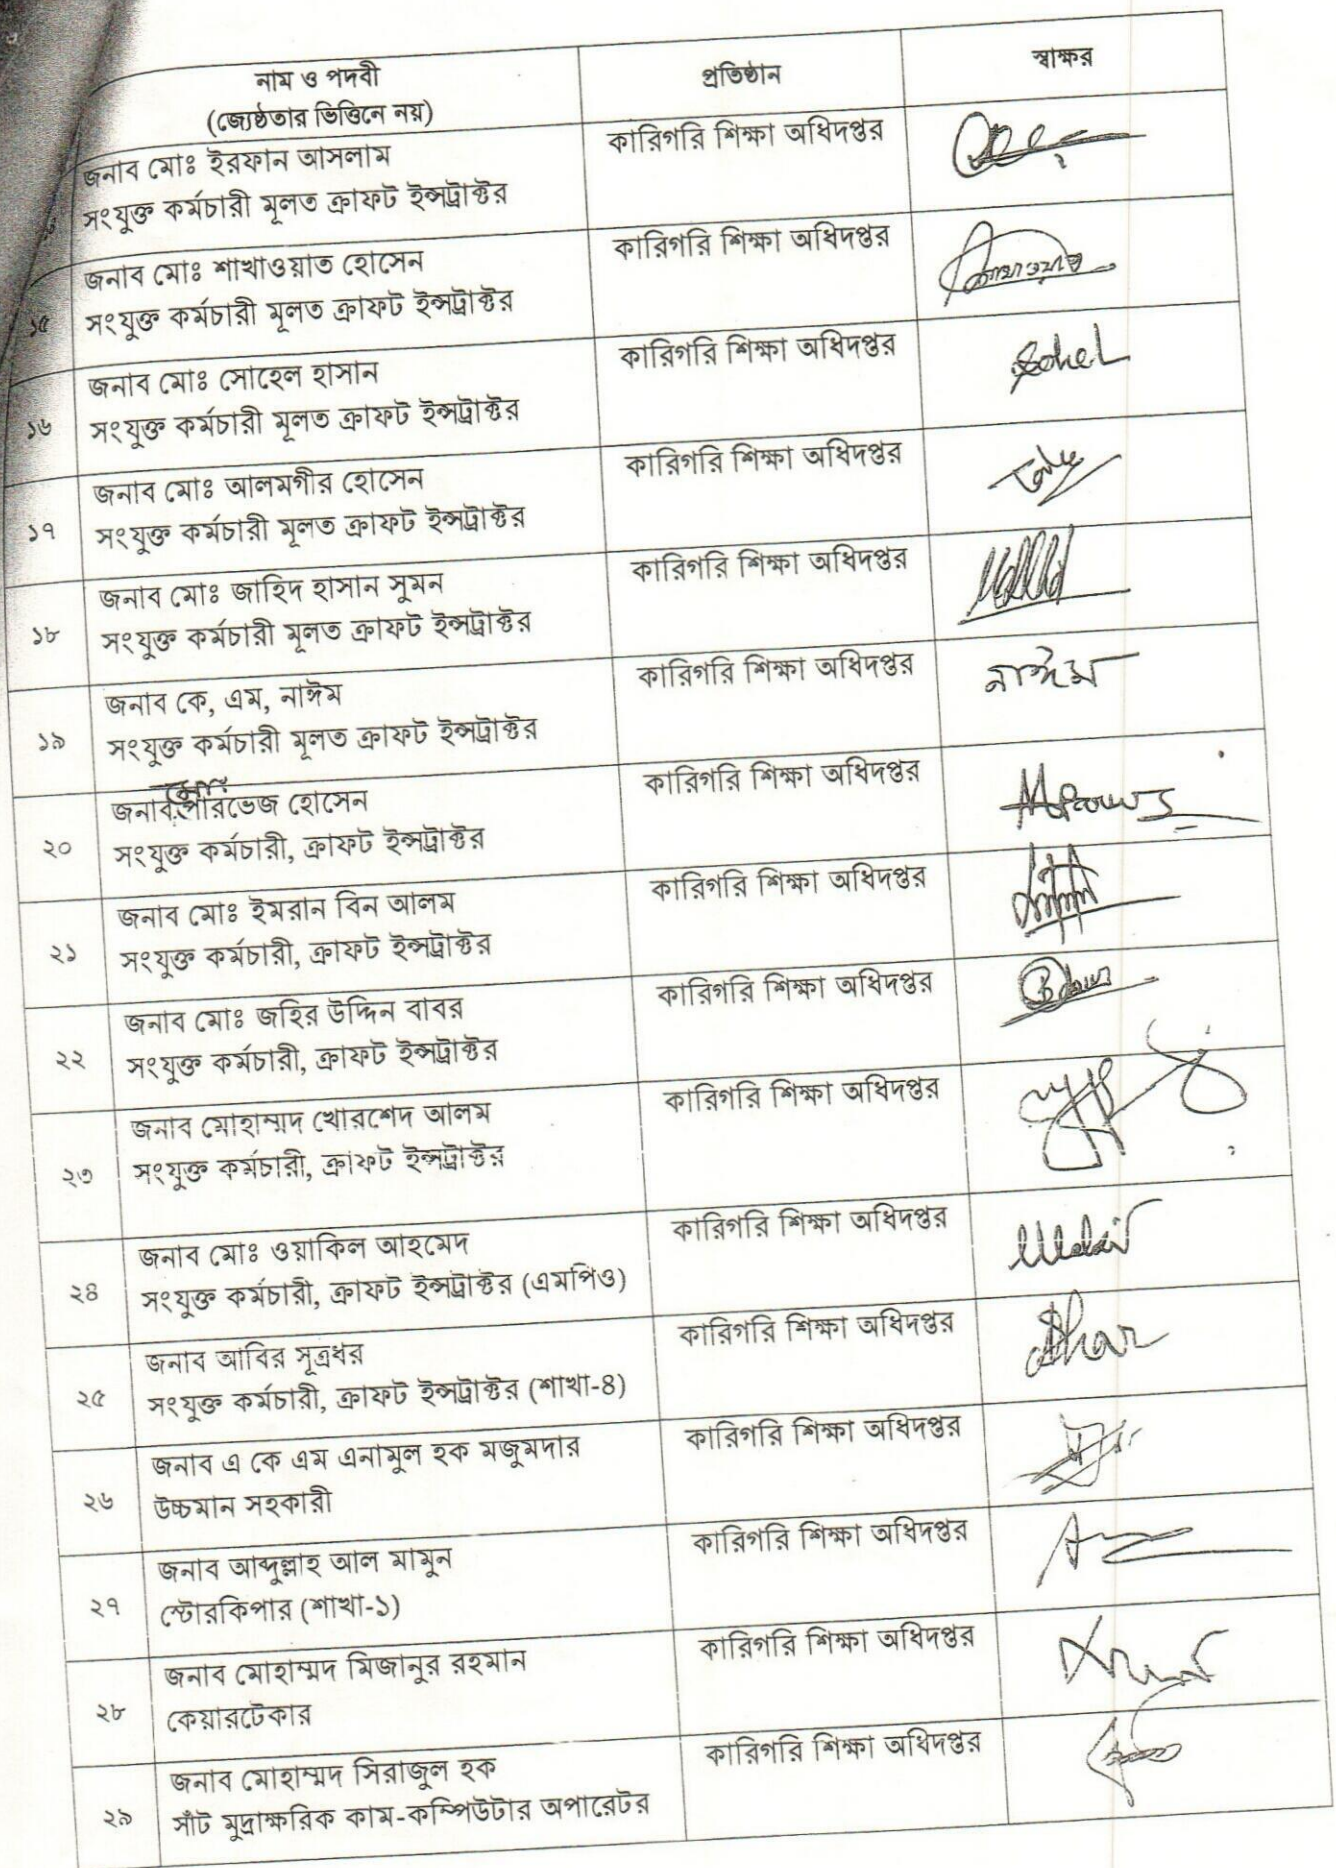 নাম ও পদবী
(জ্যেষ্ঠতার ভিত্তিনে নয়)
প্রতিষ্ঠান
স্বাক্ষর
জনাব মোঃ ইরফান আসলাম
সংযুক্ত কর্মচারী মূলত ক্রাফট ইন্সট্রাক্টর
কারিগরি শিক্ষা অধিদপ্তর
১৫
জনাব মোঃ শাখাওয়াত হোসেন
সংযুক্ত কর্মচারী মূলত ক্রাফট ইন্সট্রাক্টর
কারিগরি শিক্ষা অধিদপ্তর
১৬
জনাব মোঃ সোহেল হাসান
সংযুক্ত কর্মচারী মূলত ক্রাফট ইন্সট্রাক্টর
কারিগরি শিক্ষা অধিদপ্তর
Sohel
১৭
জনাব মোঃ আলমগীর হোসেন
সংযুক্ত কর্মচারী মূলত ক্রাফট ইন্সট্রাক্টর
কারিগরি শিক্ষা অধিদপ্তর
১৮
জনাব মোঃ জাহিদ হাসান সুমন
সংযুক্ত কর্মচারী মূলত ক্রাফট ইন্সট্রাক্টর
কারিগরি শিক্ষা অধিদপ্তর
১৯
জনাব কে, এম, নাঈম
সংযুক্ত কর্মচারী মূলত ক্রাফট ইন্সট্রাক্টর
কারিগরি শিক্ষা অধিদপ্তর
নাঈম
২০
জনাব পারভেজ হোসেন
সংযুক্ত কর্মচারী, ক্রাফট ইন্সট্রাক্টর
কারিগরি শিক্ষা অধিদপ্তর
২১
জনাব মোঃ ইমরান বিন আলম
সংযুক্ত কর্মচারী, ক্রাফট ইন্সট্রাক্টর
কারিগরি শিক্ষা অধিদপ্তর
২২
জনাব মোঃ জহির উদ্দিন বাবর
সংযুক্ত কর্মচারী, ক্রাফট ইন্সট্রাক্টর
কারিগরি শিক্ষা অধিদপ্তর
২৩
জনাব মোহাম্মদ খোরশেদ আলম
সংযুক্ত কর্মচারী, ক্রাফট ইন্সট্রাক্টর
কারিগরি শিক্ষা অধিদপ্তর
২৪
জনাব মোঃ ওয়াকিল আহমেদ
সংযুক্ত কর্মচারী, ক্রাফট ইন্সট্রাক্টর (এমপিও)
কারিগরি শিক্ষা অধিদপ্তর
২৫
জনাব আবির সূত্রধর
সংযুক্ত কর্মচারী, ক্রাফট ইন্সট্রাক্টর (শাখা-৪)
কারিগরি শিক্ষা অধিদপ্তর
২৬
জনাব এ কে এম এনামুল হক মজুমদার
উচ্চমান সহকারী
কারিগরি শিক্ষা অধিদপ্তর
২৭
জনাব আব্দুল্লাহ আল মামুন
স্টোরকিপার (শাখা-১)
কারিগরি শিক্ষা অধিদপ্তর
২৮
জনাব মোহাম্মদ মিজানুর রহমান
কেয়ারটেকার
কারিগরি শিক্ষা অধিদপ্তর
২৯
জনাব মোহাম্মদ সিরাজুল হক
সাঁট মুদ্রাক্ষরিক কাম-কম্পিউটার অপারেটর
কারিগরি শিক্ষা অধিদপ্তর